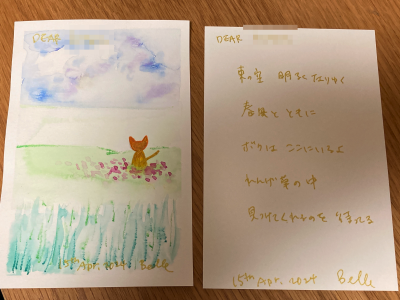 DEAR
15th Apr. 2024 Belle
DEAR
東の空 明るくなりゆく
春風と ともに
ボクは ここにいるよ
れんげ草の中
見つけてくれるのを 待ってる
15th Apr. 2024 Belle